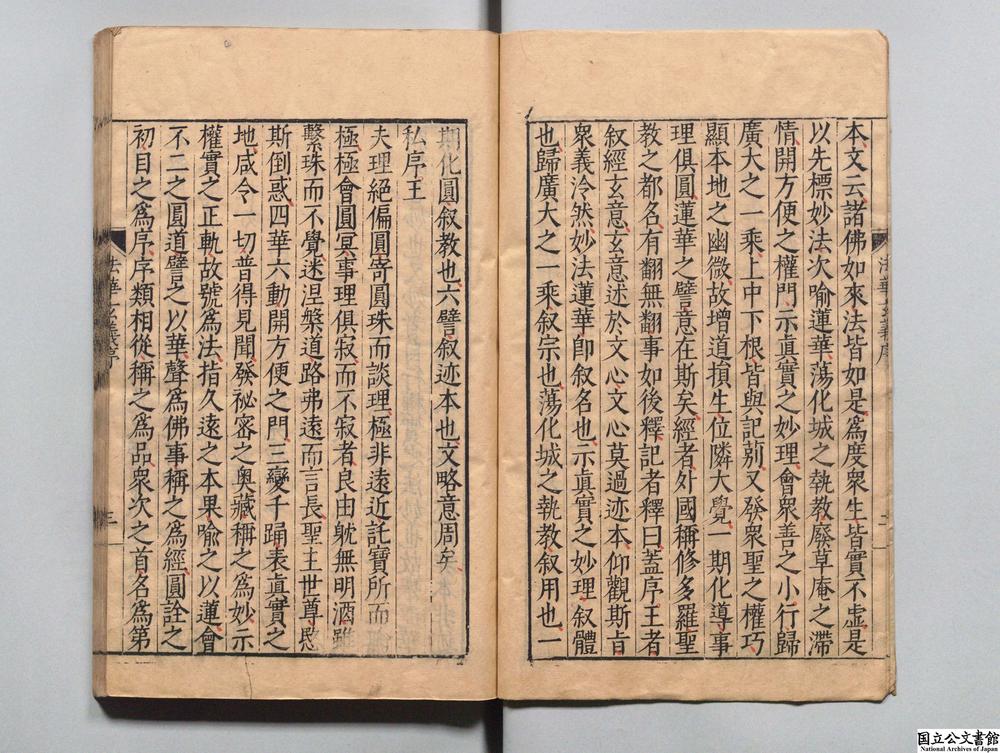 本文云諸佛如來法皆如是爲度衆生皆實不虛是
以先標妙法次喻蓮華蕩化城之執教廢草庵之滯
情開方便之權門示眞實之妙理會衆善之小行歸
廣大之一乘上中下根皆與記莂又發衆聖之權巧
顯本地之幽微故增道損生位隣大覺一期化導事
理俱圓蓮華之譬意在斯矣經者外國稱修多羅聖
教之都名有翻無翻事如後釋記者釋曰蓋序王者
叙經玄意玄意述於文心文心莫過迹本仰觀斯旨
衆義泠然妙法蓮華即叙名也示眞實之妙理叙體
也歸廣大之一乘叙宗也蕩化城之執教叙用也一
法華玄義序
二
期化圓叙教也六譬叙迹本也文略意周矣
私序王
夫理絕偏圓寄圓珠而談理極非遠近託寶所而
極極會圓冥事理俱寂而不寂者良由躭無明酒雖
繫珠而不覺迷涅槃道路弗遠而言長聖主世尊愍
斯倒惑四華六動開方便之門三變千踊表眞實之
地咸令一切普得見聞發祕密之奧藏稱之爲妙示
權實之正軌故號爲法指久遠之本果喻之以蓮會
不二之圓道譬之以華聲爲佛事稱之爲經圓詮之
初目之爲序序類相從稱之爲品衆次之首名爲第
法華玄義序
三
国立公文書館
National Archives of Japan